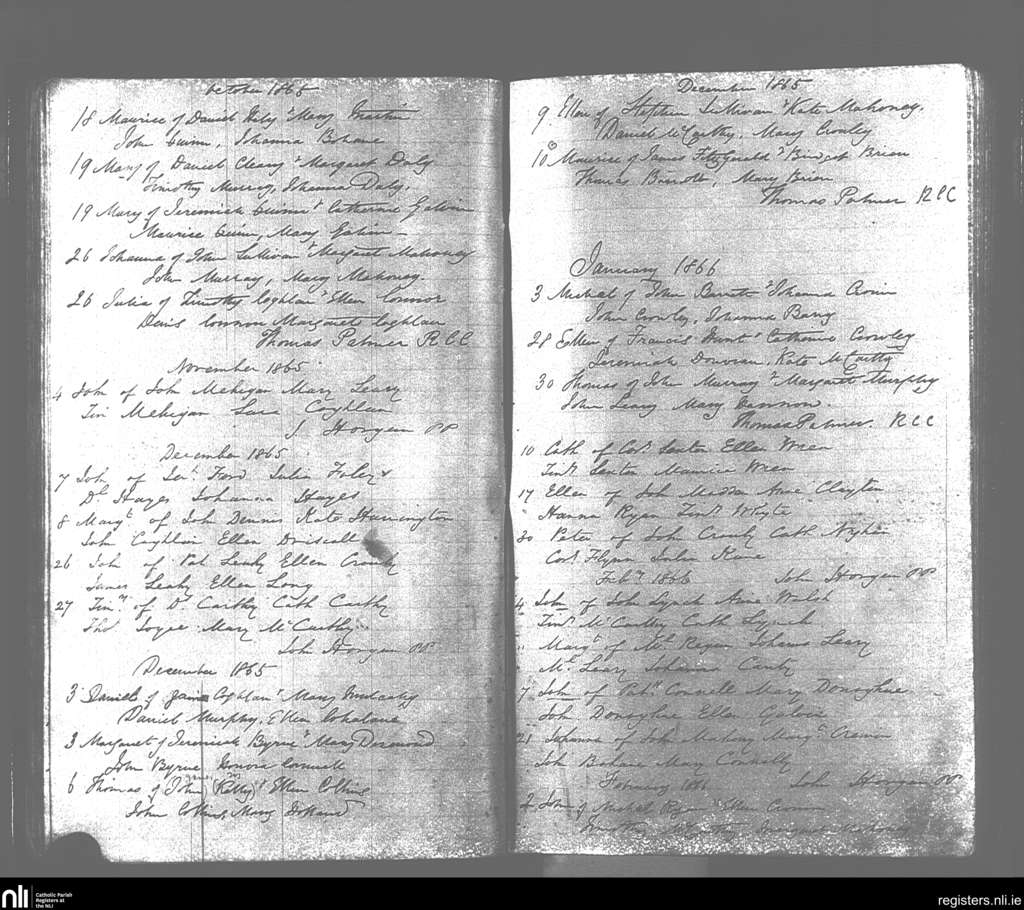 October 1865
18 Maurice of Daniel Daly & Mary Martin
John Quinn, Johanna Bohane
19 Mary of Daniel Cleary & Margaret Daly
Timothy Murray, Johanna Daly.
19 Mary of Jeremiah Quinn & Catherine Galvin
Maurice Quinn, Mary Galvin
26 Johanna of John Sullivan & Margaret Mahoney
John Murray, Mary Mahoney.
26 Julia of Timothy Coghlan & Ellen Connor
Denis Connor Margaret Coghlan
Thomas Palmer R.C.C
November 1865
4 John of John Mehegan Mary Leary
Tim Mehegan Coghlan
J. Horgan PP
December 1865
7 John of Ford Julia Foley
Hayes Johanna Hayes
8 Margt of John Dennis Kate Harrington
John Coghlan Ellen Driscoll
26 Joh of Pat Leahy Ellen Crowly
James Leahy Ellen Long
27 Timy of D. Carthy Cath Carthy
Thos Joyce Mary McCarthy
Joh Horgan PP
December 1865
3 Daniel of Coghlan & Mary
Daniel Murphy, Ellen Cohalane
3 Margaret of Jeremiah Byrne & Mary Desmond
John Byrne Honora Connell
6 Thomas of John Kelly & Ellen Collins
John Collins, Mary
December 1865
9 Ellen of Stephen Sullivan & Kate Mahoney.
Daniel McCarthy, Mary Crowley
10 Maurice of James Fitzgerald & Bridget Brien
Thomas, Mary Brien
Thomas Palmer RCC
January 1866
3 Michael of John Barrett & Johanna Cronin
John Crowley, Johanna Barry
28 Ellen of Francis Hunt & Catherine Crowley
Jeremiah Donovan, Kate McCarthy
30 Thomas of John Murray & Margaret Murphy
John Leary Mary
Thomas Palmer. RCC
10 Cath of Cors Lenton Ellen Wren
Timy Lenton Maurice Wren
17 Ellen of Joh Madden Anne Clayton
Hanna Ryan Timy Whyte
30 Peter of John Crowly Cath
Cors Flynn Julia Kane
Feby 1866 John Horgan PP
4 John of John Lynch Anne Walsh
Timy McCarthy Cath Lynch
" Margt of Ml Regan Johanna Leary
Ml Leary Johanna Canty
7 John of Patk Connell Mary Donoghue
Joh Donoghue Ellen Galvin
21 Johanna of John Mahony Margt Cremin
Joh Bohane Mary Connolly
February 1866 John Horgan PP
2 John of Michael Ryan & Ellen
nli
Catholic Parish
Registers at
the NLI
registers.nli.ie